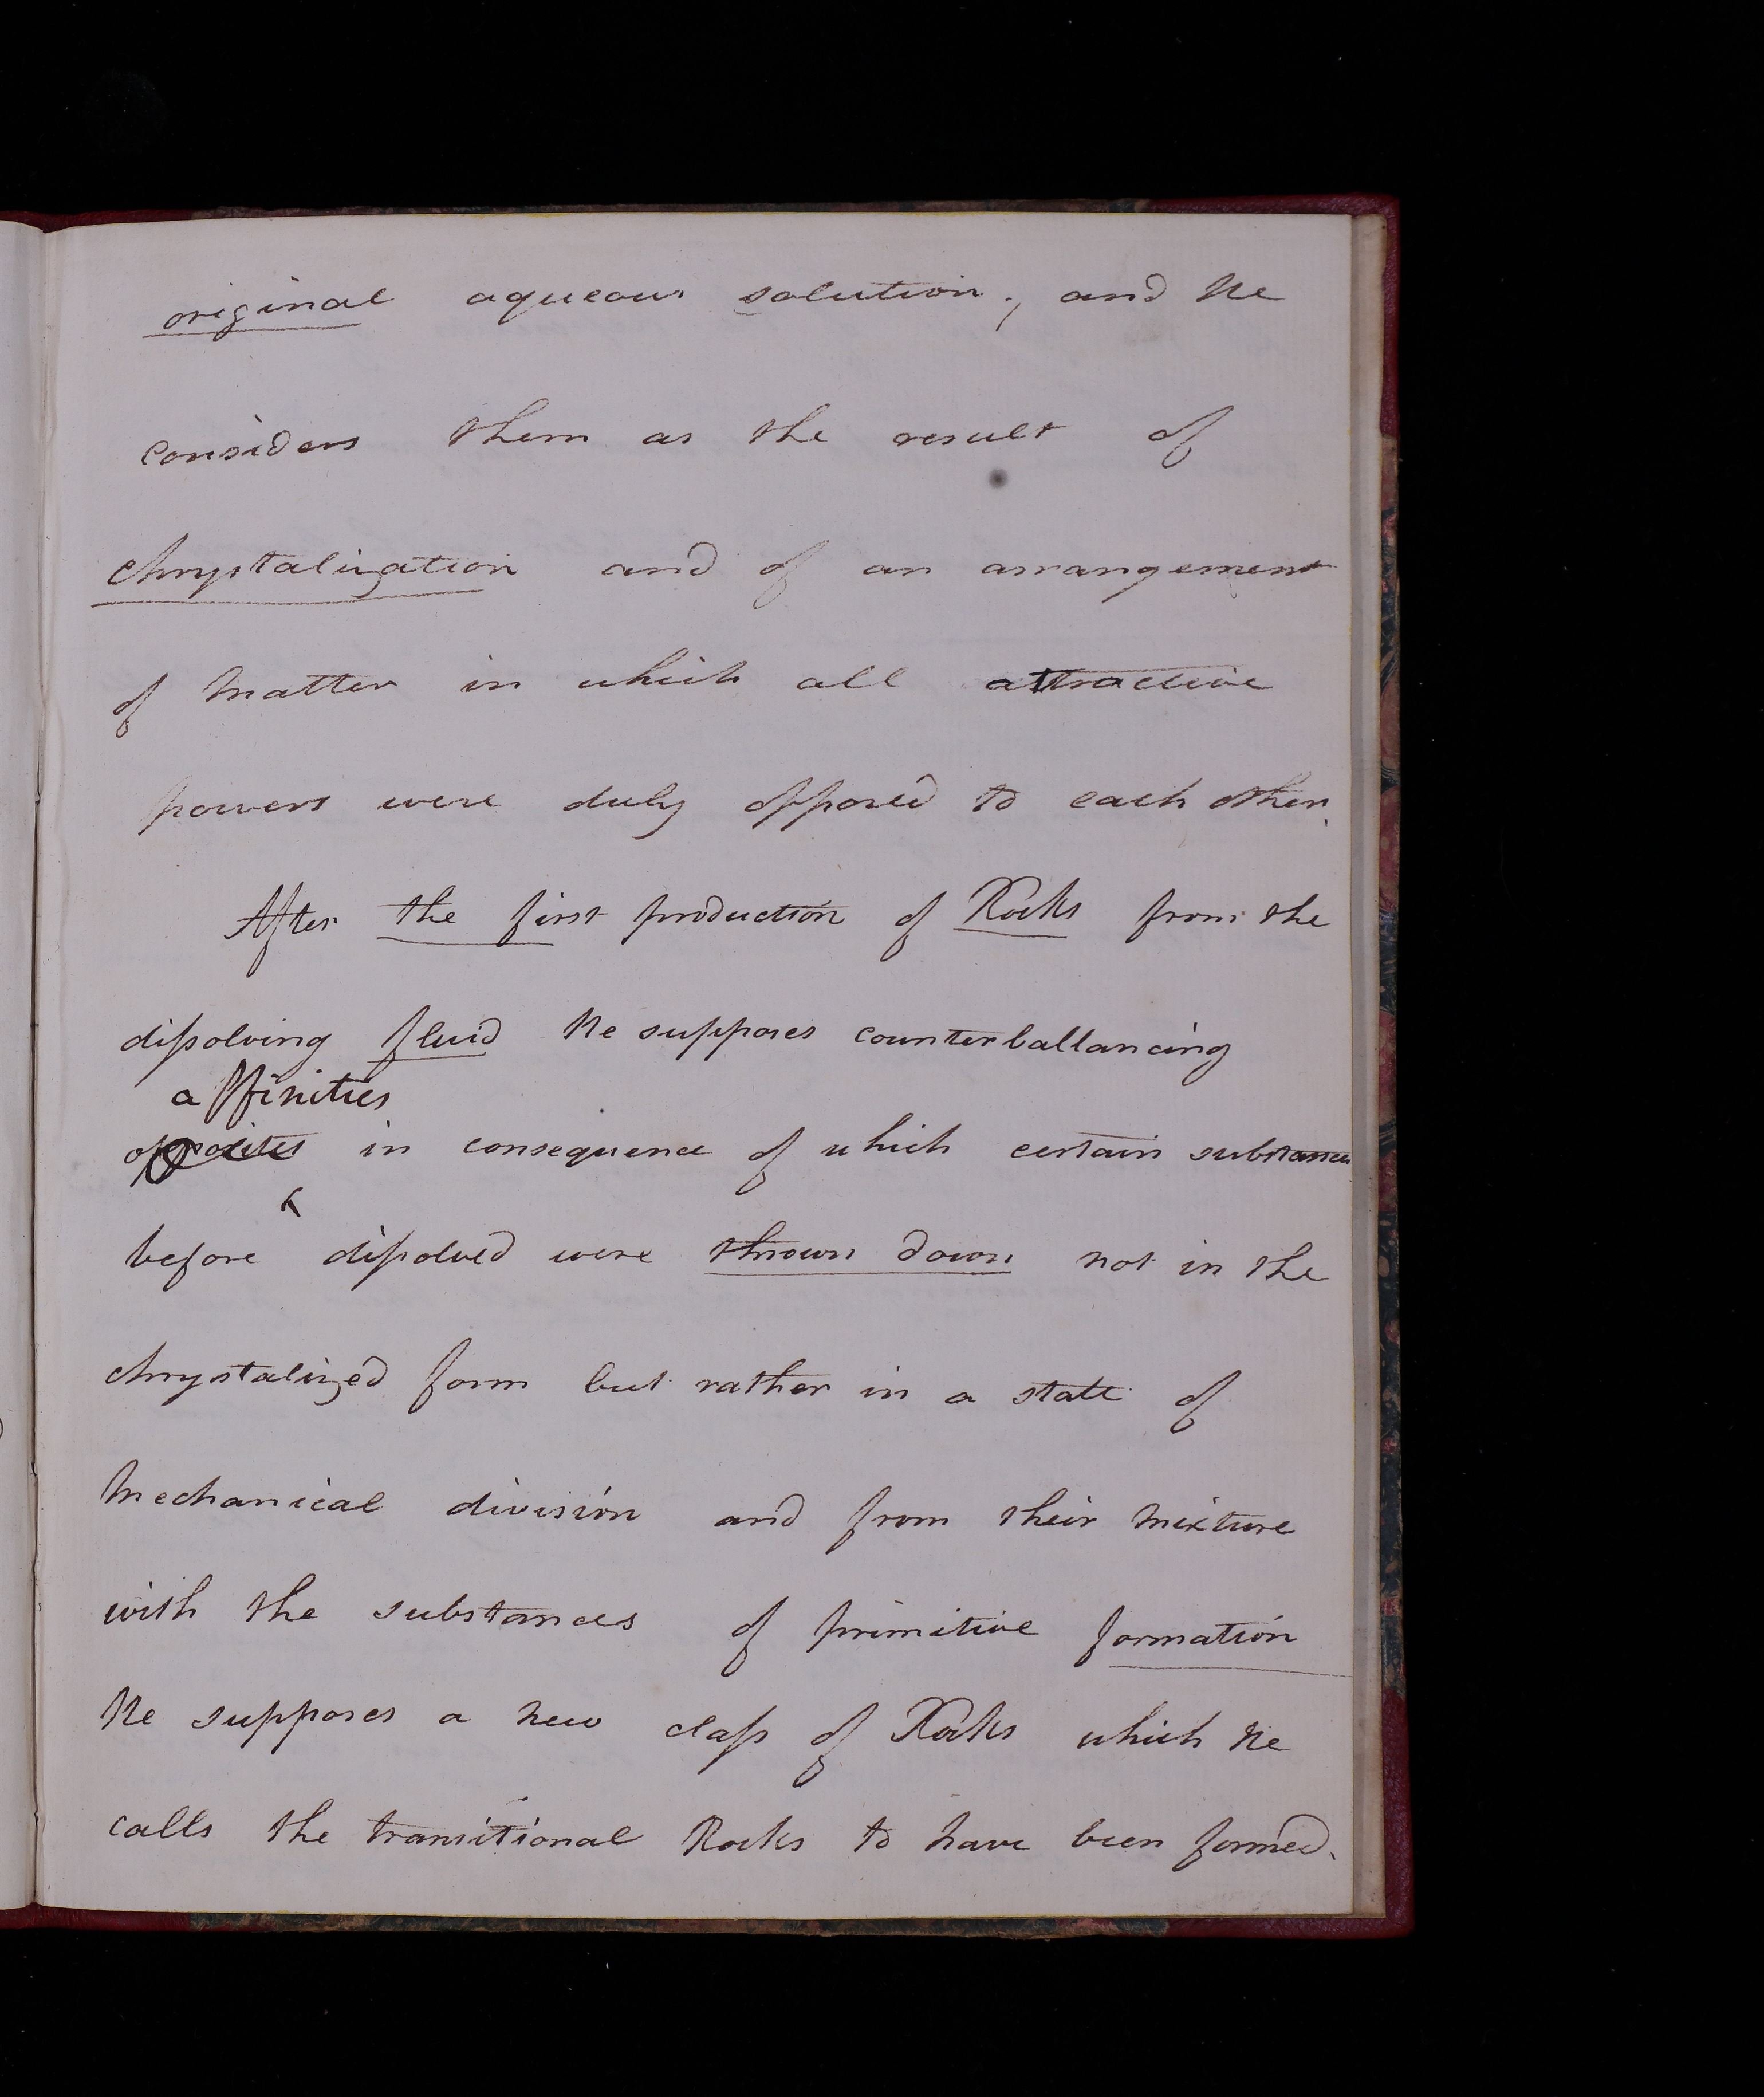 original aqueous solution; and He
considers them as the result of
chrystalization and of an arrangement
of matter in which all attractive
powers were duly opposed to each other.
After the first production of Rocks from the
dissolving fluid He supposes counterballancing
affinities
in consequence of which certain substances
before dissolved were thrown down not in the
chrystalized form but rather in a state of
Mechanical division and from their mixture
with the substances of primitive formation
He supposes a new class of Rocks which He
calls the transitional Rocks to have been formed.